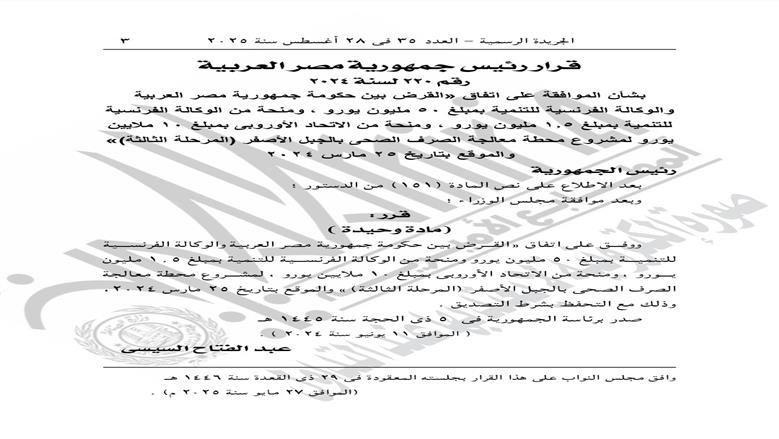 الجريدة الرسمية – العدد ٣٥ فى ٢٨ أغسطس سنة ٢٠٢٥ ٣
قرار رئيس جمهورية مصر العربية
رقم ٢٢٠ لسنة ٢٠٢٤
بشأن الموافقة على اتفاق «القرض بين حكومة جمهورية مصر العربية
والوكالة الفرنسية للتنمية بمبلغ ٥٠ مليون يورو ، ومنحة من الوكالة الفرنسية
للتنمية بمبلغ ١.٥ مليون يورو ، ومنحة من الاتحاد الأوروبى بمبلغ ١٠ ملايين
يورو لمشروع محطة معالجة الصرف الصحى بالجبل الأصفر (المرحلة الثالثة)»
والموقع بتاريخ ٢٥ مارس ٢٠٢٤
رئيس الجمهورية
بعد الاطلاع على نص المادة (١٥١) من الدستور ؛
وبعد موافقة مجلس الوزراء ؛
قرر :
( مادة وحيدة )
ووفق على اتفاق «القرض بين حكومة جمهورية مصر العربية والوكالة الفرنسية
للتنمية بمبلغ ٥٠ مليون يورو ومنحة من الوكالة الفرنسية للتنمية بمبلغ ١.٥ مليون
يورو ، ومنحة من الاتحاد الأوروبى بمبلغ ١٠ ملايين يورو ، لمشروع محطة معالجة
الصرف الصحى بالجبل الأصفر (المرحلة الثالثة) » والموقع بتاريخ ٢٥ مارس ٢٠٢٤ ،
وذلك مع التحفظ بشرط التصديق .
صدر برئاسة الجمهورية فى ٥ ذى الحجة سنة ١٤٤٥ هـ
( الموافق ١١ يونيو سنة ٢٠٢٤ ) .
عبد الفتاح السيسى
وافق مجلس النواب على هذا القرار بجلسته المعقودة فى ٢٩ ذى القعدة سنة ١٤٤٦ هـ
(الموافق ٢٧ مايو سنة ٢٠٢٥ م) .